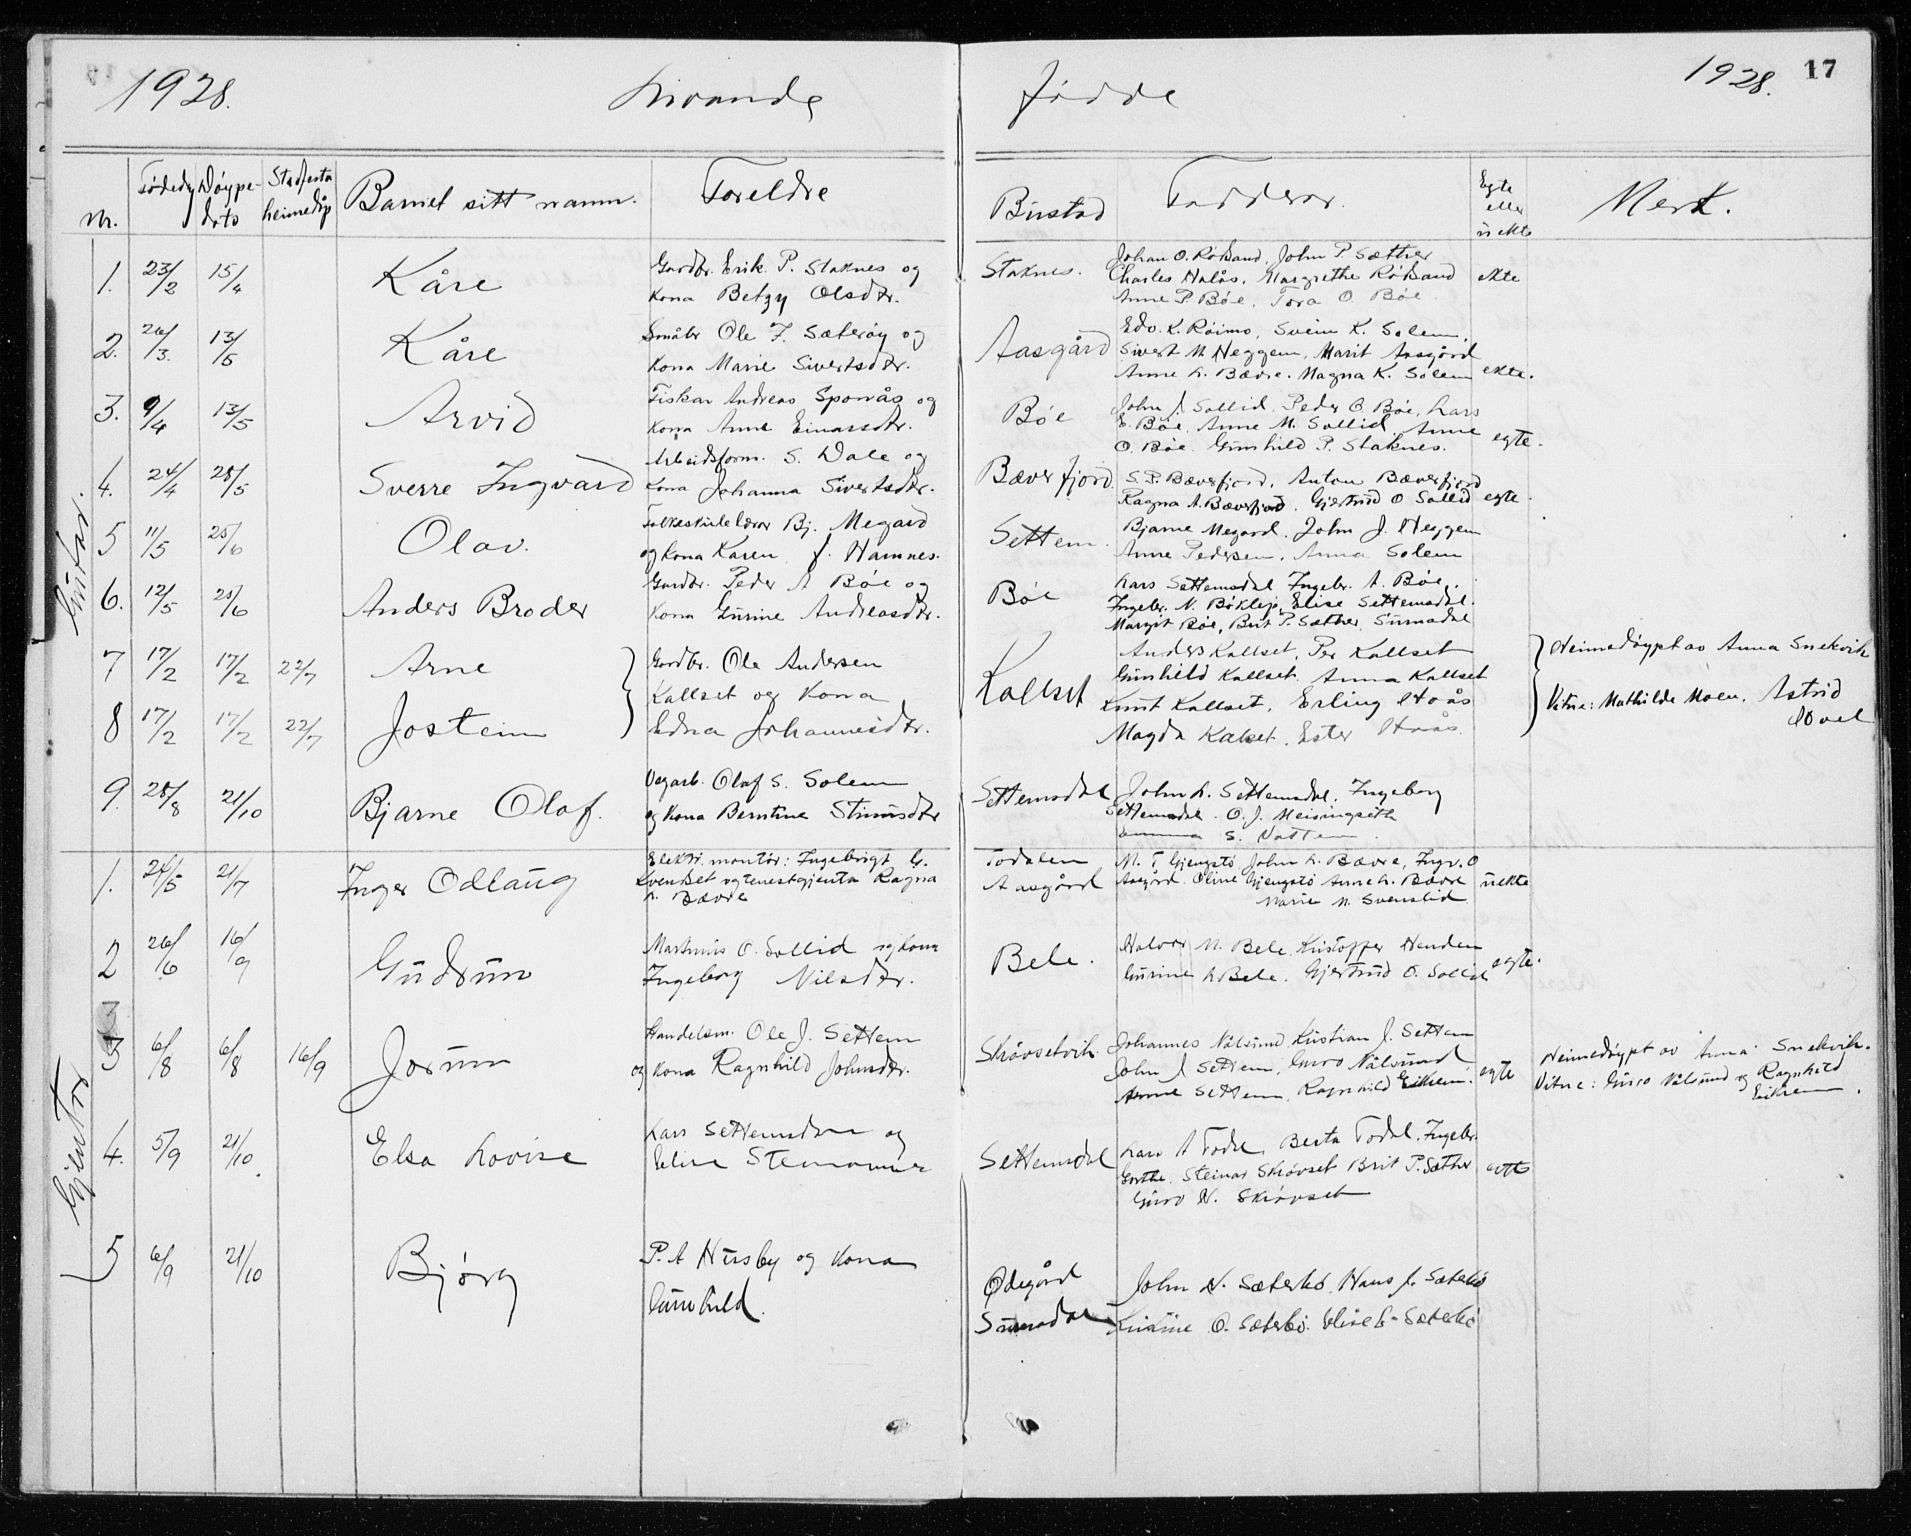 1928. Livande fødde 1928. 17
Nr. Fødedag Døype-dato Stadfesta heimedåp Barnet sitt namn. Foreldre Bustad Fadderar. Egte eller uekte Merk.
Gutar.
1. 23/2 15/4 Kåre
Gardbr. Erik P. Staknes og
Kona Betzy Olsdtr.
Staknes.
Johan O. Røkand, John P. Sæther
Charles Halås, Margrethe Røkand
Anne P. Bøe, Tora O. Bøe.
ekte
2. 26/3. 13/5 Kåre
Småbr Ole F. Sæterøy og
Kona Marie Sivertsdtr.
Aasgård
Edv. K. Røimo, Svein K. Solem,
Sivert M Heggem, Marit Aasgård
Anne L. Bævre. Magna K. Solem
ekte.
3. 9/4 13/5 Arvid
Fiskar Andreas Sponås og
Kona Anne Einarsdtr.
Bøe
John J. Sollid, Peder O. Bøe, Lars
E. Bøe, Anne M. Sollid, Anne
O. Bøe Gunhild P. Staknes.
egte.
4. 24/4 28/5 Sverre Ingvard
Arbeidsform. S. Dale og
Kona Johanna Sivertsdtr.
Bæverfjord
S. P. Bæverfjord, Anton Bæverfjord
Ragna A. Bæverfjord. Gjertrud O Sollid
egte.
5 11/5 25/6 Olav.
Folkeskulelærer Bj. Megard
og Kona Karen f. Hamnes.
Settem.
Bjarne Megard. John J. Heggem
Anne Pedersen, Anna Solem
6. 12/5 25/6 Anders Broder
Gardbr. Peder A Bøe og
Kona Gurine Andreasdtr.
Bøe
Lars Settemsdal Ingebr. A. Bøe,
Ingebr. N. Bøklep, Elise Settemsdal.
Margit Bøe, Brit P. Sæther, Surnadal
7 17/2 17/2 22/7 Arne
8 17/2 17/2 22/7 Jostein
Gardbr. Ole Andersen
Kallset og Kona
Edna Johannesdtr.
Kallset
Anders Kallset, Per Kallset
Gunhild Kallset. Anna Kallset
Knut Kallset, Erling Hoås
Magda Kalset. Ester Hoås.
Heimedøypt av Anna Snekvik
Vitne: Mathilde Moen, Astrid
9. 28/8 21/10 Bjarne Olaf.
Vegarb. Olaf S. Solem
og Kona Berntine
Settemsdal
John L. Settemsdal. Ingeborg
Settemsdal. O. J. Meisingseth
S.
Gjentor
1. 24/5 21/7 Inger Odlaug
Elektr. montør: Ingebrigt G.
Kvendset og tenestgjenta Ragna
L. Bævre
Todalen
Aasgård
M. T. Gjengstø John L. Bævre, Ingv. O
Aasgård. Oline Gjengstø Anne L. Bævre
Marie M. Svenslid
uekte
2 26/6 16/9 Gudrun
Martinus O. Sollid og kona
Ingeborg Nilsdtr.
Bele.
Halvor N. Bele Kristoffer Henden
Gurine L Bele. Gjertrud O. Sollid
egte.
3 6/8 6/8 16/9 Jorunn
Handelsm. Ole J. Settem
og Kona Ragnhild Johnsdtr.
Skrøvsetvik
Johannes Nålsund Kristian J. Settem
John J Settem, Guro Nålsund
Anne Settem, Ragnhild Eikrem.
egte
Heimedøypt av Anna Snekvik.
Vitne: Guro Nålsund og Ragnhild
Eikrem.
4. 5/9 21/10. Elsa Lovise
Lars Settemsdal og
Elise
Settemsdal
Lars A Todal, Berta Todal. Ingebr.
Grøthe. Steinar Skrøvset Brit P. Sæther
Guro N. Skrøvset
egte
5 6/9 21/10 Bjørg
P. A Husby og Kona
Gunhild.
Ødegård
Surnadal
John N. Sæterbø. Hans J. Sæterbø
Kristine O. Sæterbø. Elise G. Sæterbø